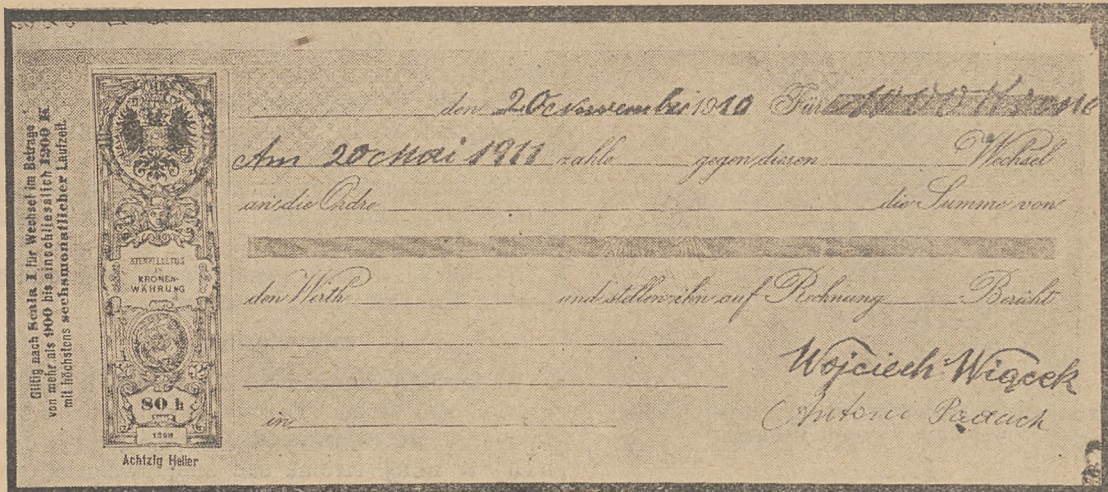 Gültig nach Scala I für Wechsel im Betrage
von mehr als 900 bis einschliesslich 1200 K
mit höchstens sechsmonatlicher Laufzeit.
STEMPELSTOF
IN
KRONEN-
WÄHRUNG
80 h
1898
Achtzig Heller
den 20 November 1910 Für
Am 20 Mai 1911 zahle gegen diesen Wechsel
an die Ordre die Summe von
den Werth und stellen ihn auf Rechnung Bericht
in
Wojciech Wiącek
Antoni